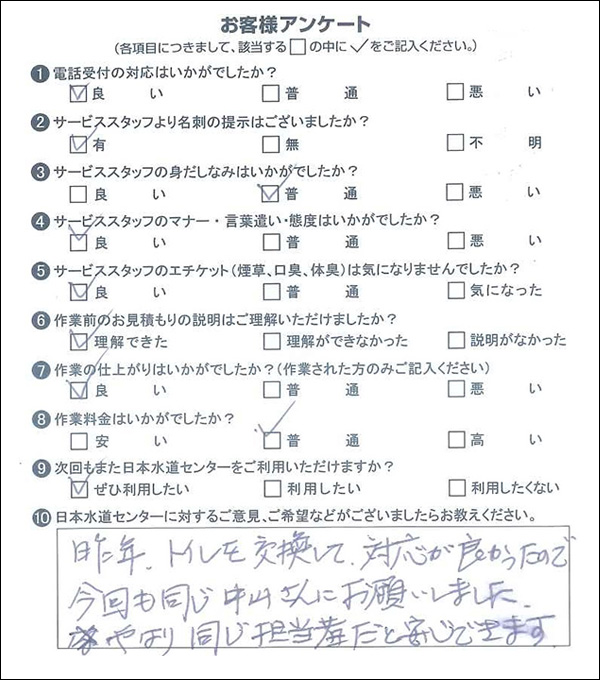 お客様アンケート
(各項目につきまして、該当する□の中に✓をご記入ください。)
❶電話受付の対応はいかがでしたか?
☑良い □普通 □悪い
❷サービススタッフより名刺の提示はございましたか?
☑有 □無 □不明
❸サービススタッフの身だしなみはいかがでしたか?
□良い ☑普通 □悪い
❹サービススタッフのマナー・言葉遣い・態度はいかがでしたか?
☑良い □普通 □悪い
❺サービススタッフのエチケット(煙草、口臭、体臭)は気になりませんでしたか?
☑良い □普通 □気になった
❻作業前のお見積もりの説明はご理解いただけましたか?
☑理解できた □理解ができなかった □説明がなかった
❼作業の仕上がりはいかがでしたか?(作業された方のみご記入ください)
☑良い □普通 □悪い
❽作業料金はいかがでしたか?
□安い ☑普通 □高い
❾次回もまた日本水道センターをご利用いただけますか?
☑ぜひ利用したい □利用したい □利用したくない
❿日本水道センターに対するご意見、ご希望などがございましたらお教えください。
昨年、トイレを交換して、対応が良かったので
今回も同じ中山さんにお願いしました。
やはり同じ担当者だと安心できます